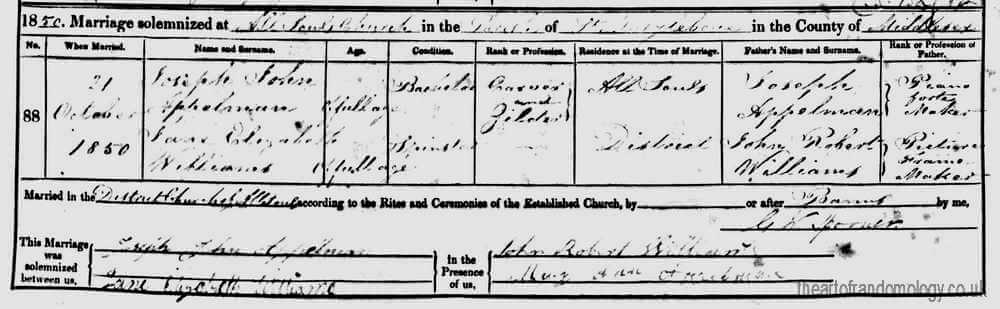 1850. Marriage solemnized at All Souls Church in the Parish of St. Marylebone in the County of Middlesex
No. When Married. Name and Surname. Age. Condition. Rank or Profession. Residence at the Time of Marriage. Father's Name and Surname. Rank or Profession of Father.
88 21 October 1850
Joseph John Appelman of full age Bachelor Carver and Gilder All Souls Joseph Appelman Piano forte Maker
Jane Elizabeth Williams of full age Spinster District John Robert Williams Picture Frame Maker
Married in the District Church of All Souls according to the Rites and Ceremonies of the Established Church, by or after Banns by me,
This Marriage was solemnized between us,
Joseph John Appelman
Jane Elizabeth Williams
In the Presence of us,
John Robert Williams
Mary Ann
theartofrandomology.co.uk